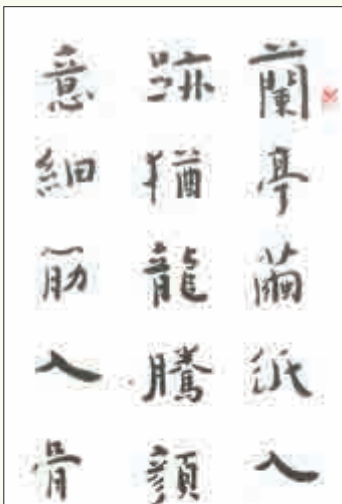 蘭亭繭紙入
跡猶龍騰顏
意細筋入骨